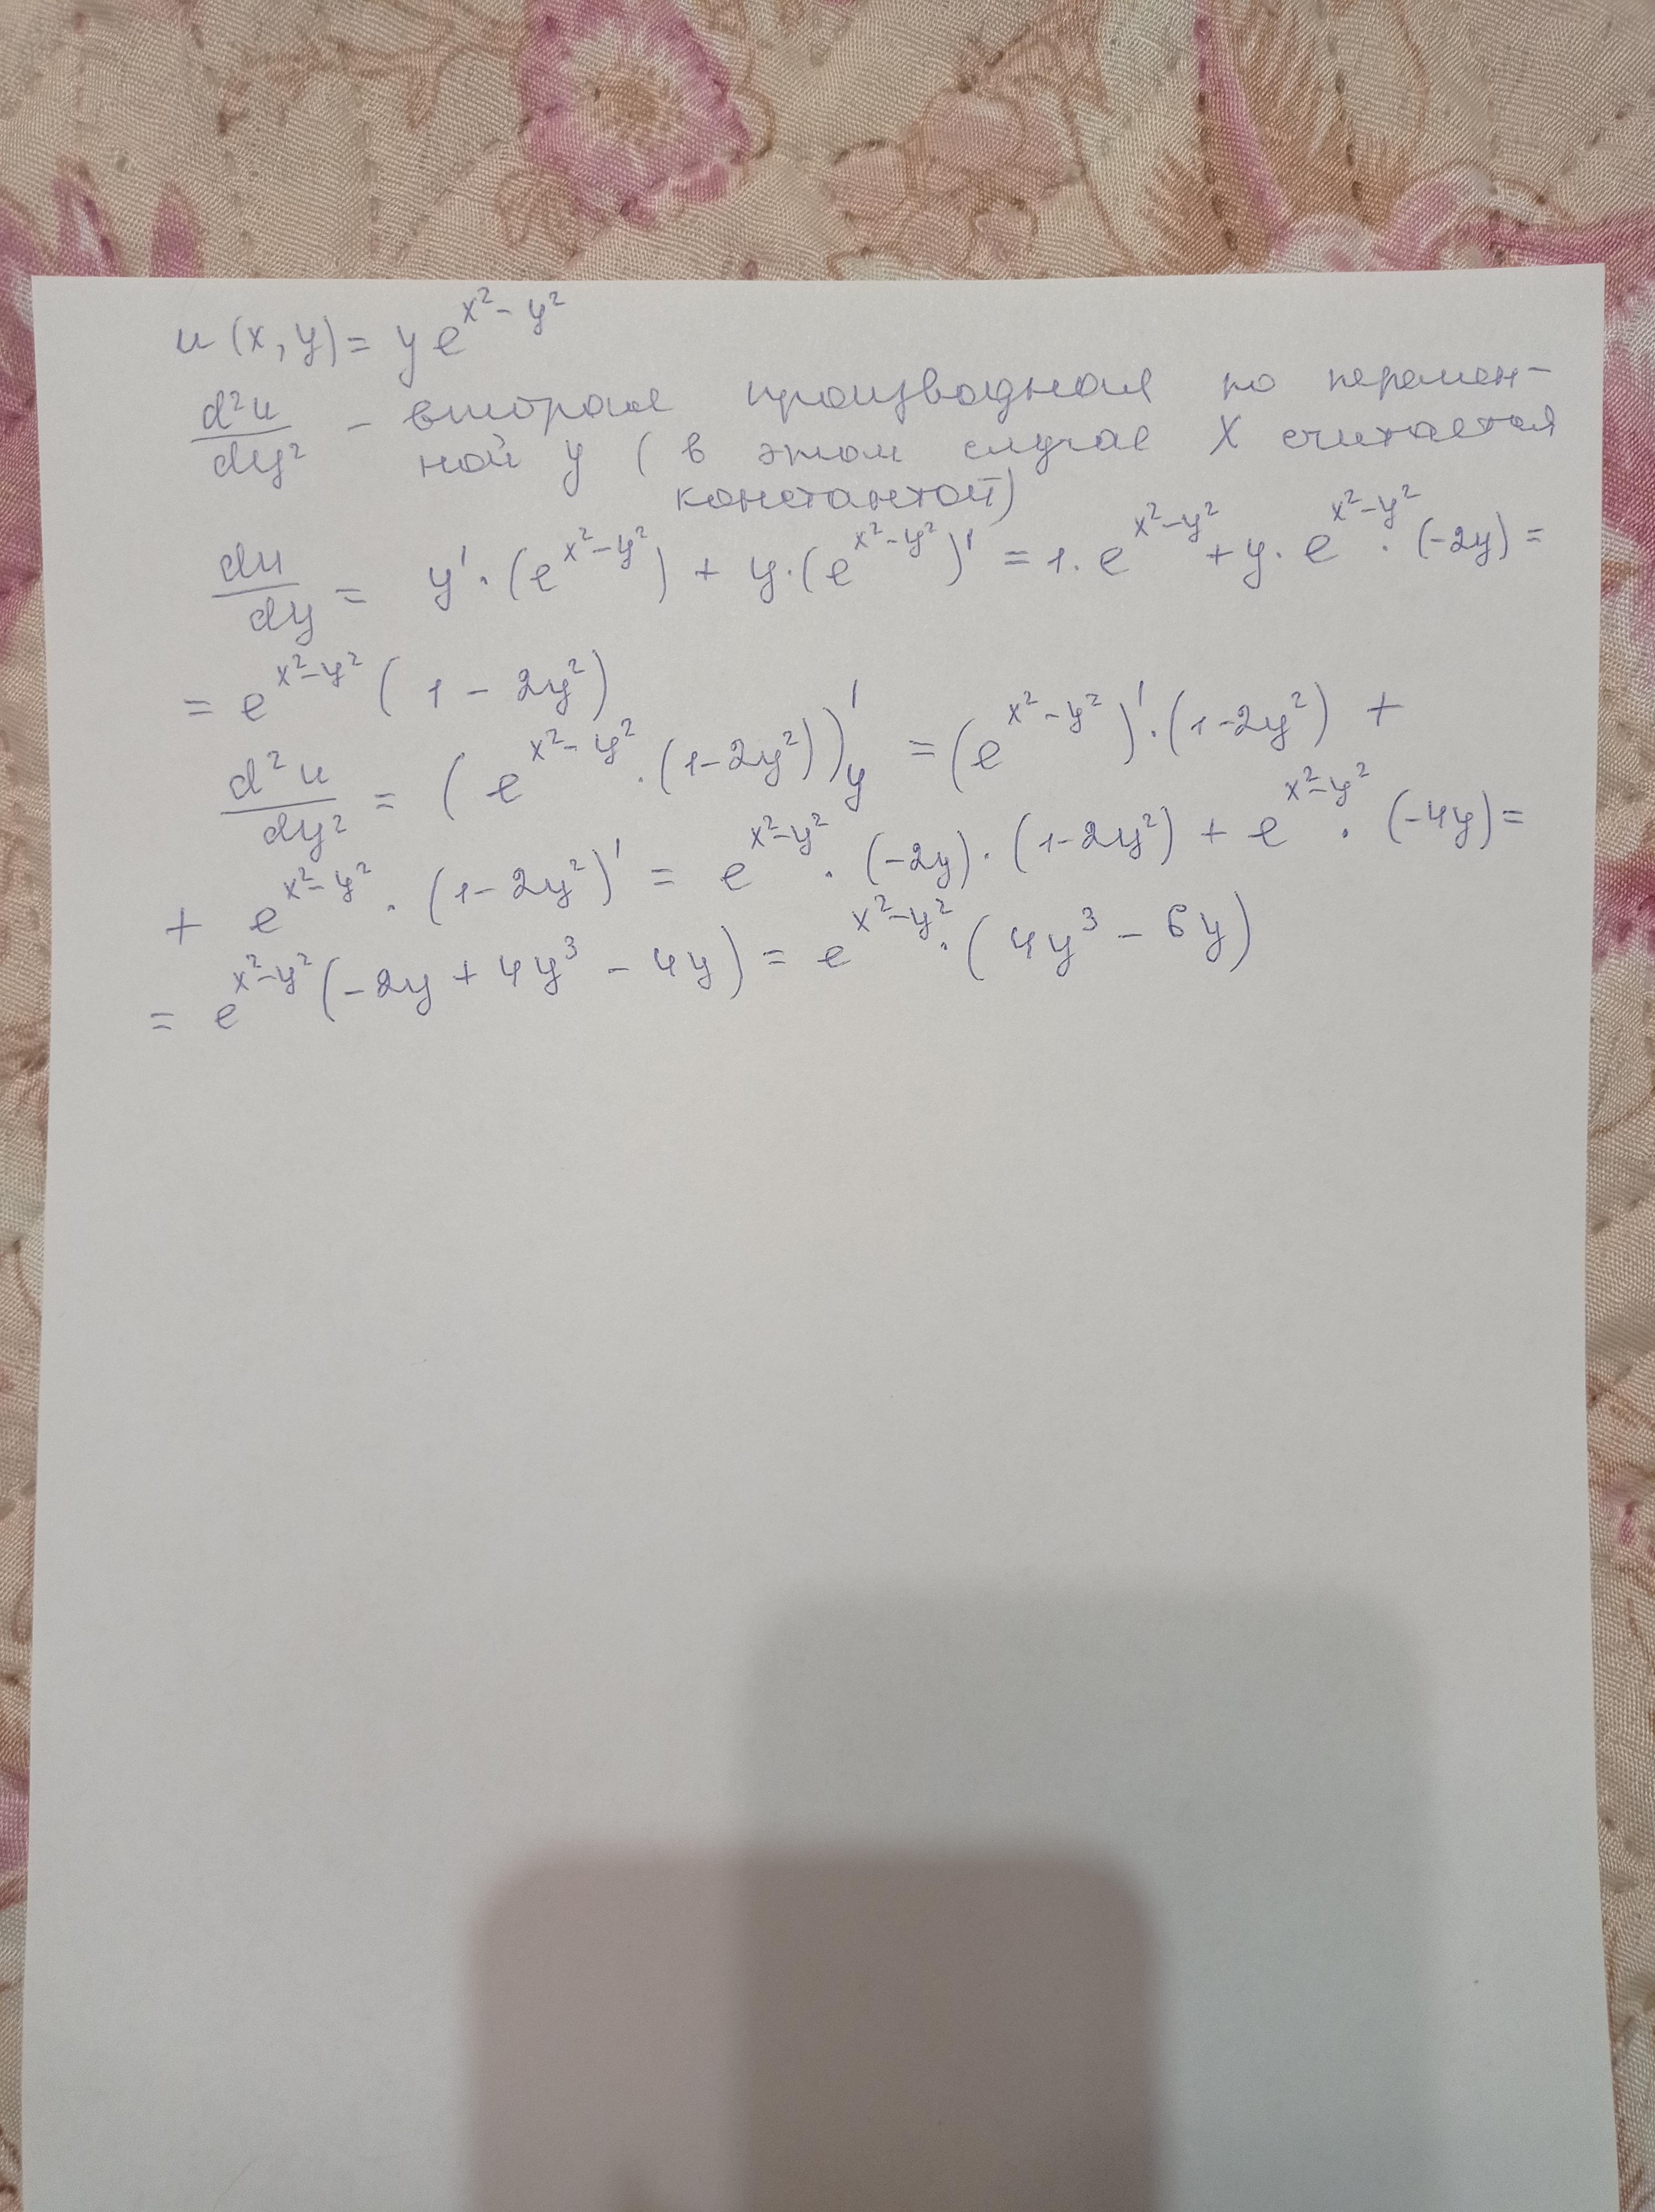 u(x,y) = y e^{x²-y²}
d²u/dy² - вторая производная по перемен-
ной y (в этом случае X считается
константой)
du/dy = y'·(e^{x²-y²}) + y·(e^{x²-y²})' = 1·e^{x²-y²} + y·e^{x²-y²}·(-2y) =
= e^{x²-y²}(1 - 2y²)
d²u/dy² = (e^{x²-y²}·(1-2y²))'_y = (e^{x²-y²})'·(1-2y²) +
+ e^{x²-y²}·(1-2y²)' = e^{x²-y²}·(-2y)·(1-2y²) + e^{x²-y²}·(-4y) =
= e^{x²-y²}(-2y + 4y³ - 4y) = e^{x²-y²}·(4y³ - 6y)